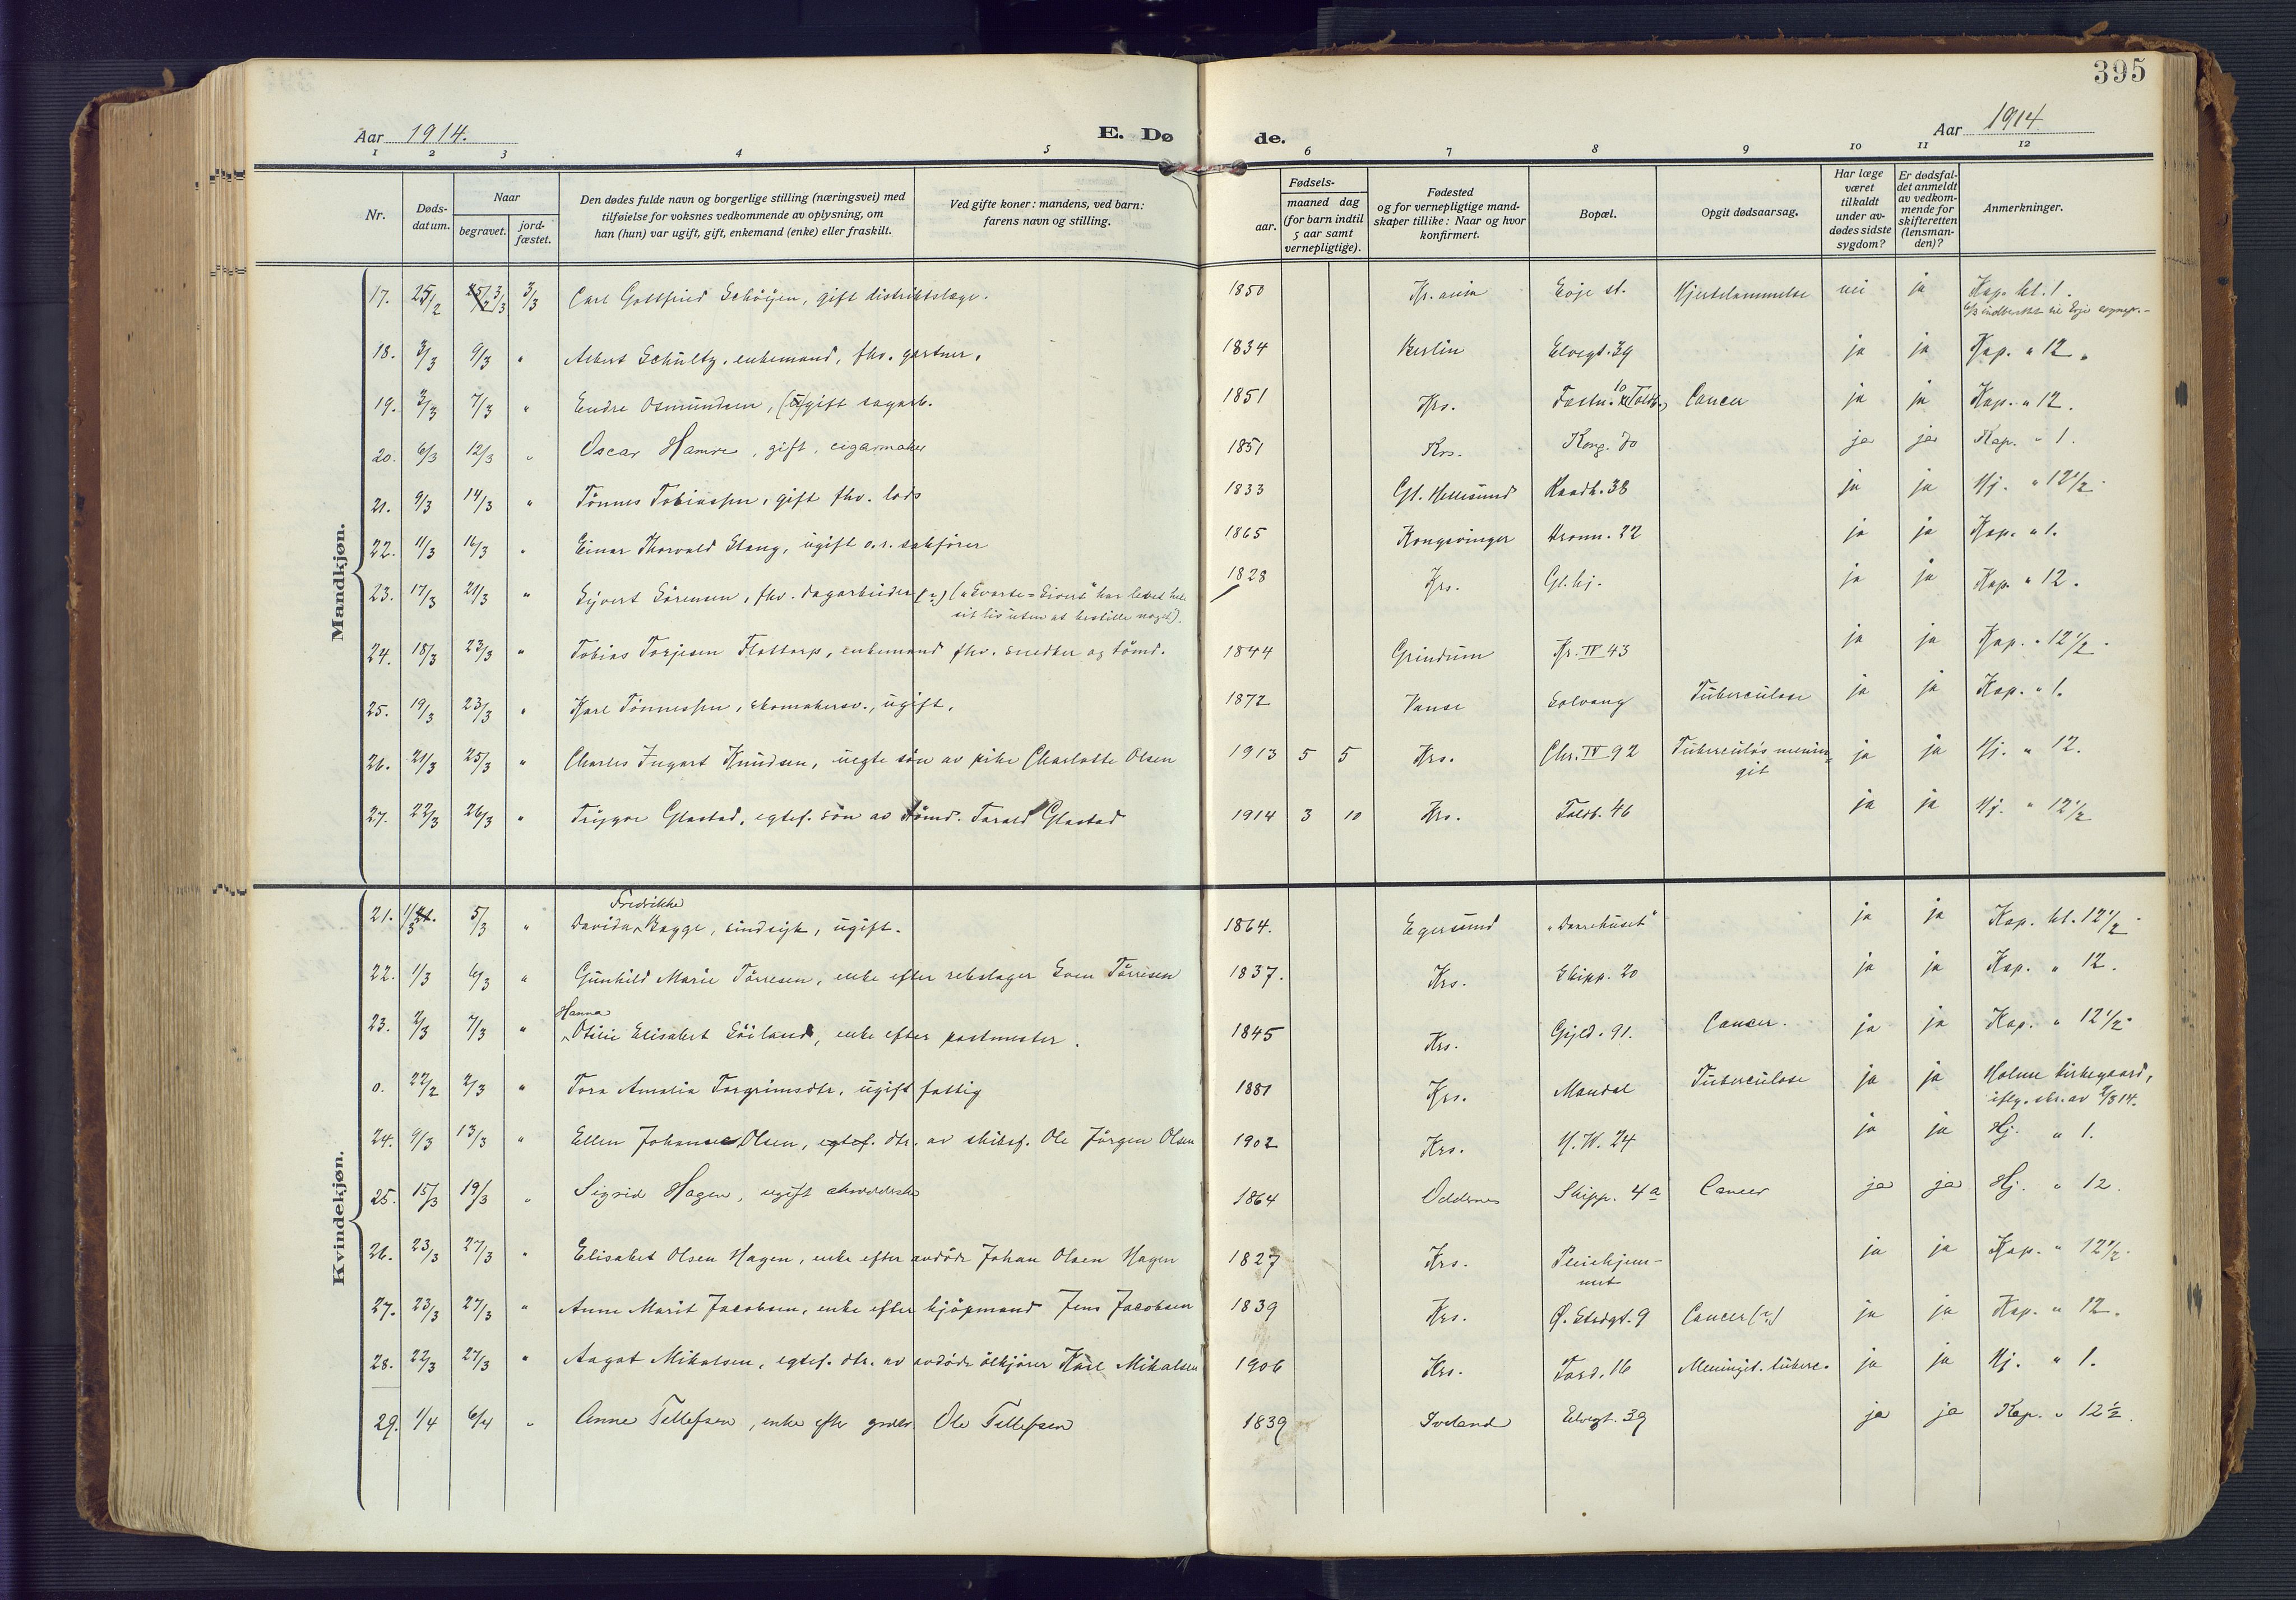 395
Aar 1914. E. Dø de. Aar 1914
1 2 3 4 5 6 7 8 9 10 11 12
Nr.
Døds-
datum.
Naar
begravet.
jord-
fæstet.
Den dødes fulde navn og borgerlige stilling (næringsvei) med
tilføielse for voksnes vedkommende av oplysning, om
han (hun) var ugift, gift, enkemand (enke) eller fraskilt.
Ved gifte koner: mandens, ved barn:
farens navn og stilling.
Fødsels-
aar.
maaned dag
(for barn indtil
5 aar samt
vernepligtige).
Fødested
og for vernepligtige mand-
skaper tillike: Naar og hvor
konfirmert.
Bopæl.
Opgit dødsaarsag.
Har læge
været
tilkaldt
under av-
dødes sidste
sygdom?
Er dødsfal-
det anmeldt
av vedkom-
mende for
skifteretten
(lensman-
den)?
Anmerkninger.
Mandkjøn.
17. 25/2 3/3 3/3 Carl Gottfried Schöyen, gift distriktslæge. 1850 Kr.ania Evje st. Hjertelammelse nei ja Kap. kl. 1.
6/3 indberettet til Evje sognepr.-
18. 3/3 9/3 " Albert Schultz, enkemand, fhv. gartner. 1834 Berlin Elvegt. 39 ja ja Kap. " 12.
19. 3/3 7/3 " Endre Osmundsen, (u)gift sagarb. 1851 Krs. Fæstn. 10 (Toldb.) Cancer ja ja Kap. " 12.
20. 6/3 12/3 " Oscar Hamre, gift, cigarmaker 1851 Krs. Kong. 70 ja ja Kap. " 1.
21. 9/3 14/3 " Tönnes Tobiassen, gift fhv. lods 1833 Gl. Hellesund Raadh. 38 ja ja Hj. " 12 1/2.
22. 11/3 16/3 " Einar Thorvald Stang, ugift o.r. sakfører 1865 Kongsvinger Dronn. 22 ja ja Kap. " 1.
23. 17/3 21/3 " Sivert Sörensen, fhv. dagarbeider (?) ("Svarte-Sivert" har levet hele
sit liv uten at bestille noget). 1828 Krs. Gl. hj. ja ja Kap. " 12.
24. 18/3 23/3 " Tobias Torjesen Flottorp, enkemand fhv. snedker og tömd. 1844 Grindum Kr. IV 43 ja ja Kap. " 12 1/2.
25. 19/3 23/3 " Karl Tönnessen, skomakersv., ugift. 1872 Vanse Solvang Tuberculose ja ja Kap. " 1.
26. 21/3 25/3 " Charles Ingart Knudsen, uegte sön av pike Charlotte Olsen 1913 5 5 Krs. Chr. IV 92 Tuberculös menin-
git ja ja Hj. " 12.
27. 22/3 26/3 " Trygve Glastad, egtef. sön av tömd. Torald Glastad 1914 3 10 Krs. Toldb. 46 ja ja Hj. " 12 1/2
Kvindekjøn.
21. 1/3 5/3 " Davida Fredrikke Bagge, sindssyk, ugift. 1864. Egersund "Daarehuset" ja ja Kap. kl. 12 1/2.
22. 1/3 6/3 " Gunhild Marie Törresen, enke efter rebslager Sven Törrisen 1837. Krs. Skipp. 20 ja ja Kap. " 12.
23. 2/3 7/3 " Hanna Otilie Elisabert Söiland, enke efter postmester. 1845 Krs. Gyld. 91. Cancer. ja ja Kap. " 12 1/2.
0. 22/2 2/3 " Tora Amalia Torgrimsdtr, ugift fattig 1881 Krs. Mandal Tuberculose ja ja Holme kirkegaard,
iflg. skr. av 2/3 14.
24. 9/3 13/3 " Ellen Johanne Olsen, egtef. dtr. av skibsf. Ole Jörgen Olsen 1902 Krs. H. W. 24 ja ja Hj. " 1.
25. 15/3 19/3 " Sigrid Hagen, ugift skrædderske 1864 Oddernes Skipp. 4a Cancer ja ja Hj. " 12.
26. 23/3 27/3 " Elisabet Olsen Hagen, enke efter avdöde Johan Olsen Hagen 1827 Krs. Pleiehjem-
met ja ja Kap. " 12 1/2.
27. 23/3 27/3 " Anne Marit Jacobsen, enke efter kjöpmand Jens Jacobsen 1839 Krs. Ø. Strdgt. 9 Cancer (?) ja ja Kap. " 12.
28. 22/3 27/3 " Aagot Mikalsen, egtef. dtr. av avdöde ölkjörer Karl Mikalsen 1906 Krs. Tord. 16 Meningit. tuberc. ja ja Hj. " 1.
29. 1/4 6/4 " Anne Tellefsen, enke eftr grdbr. Ole Tellefsen 1839 Iveland Elvegt. 39 ja ja Kap. " 12 1/2.